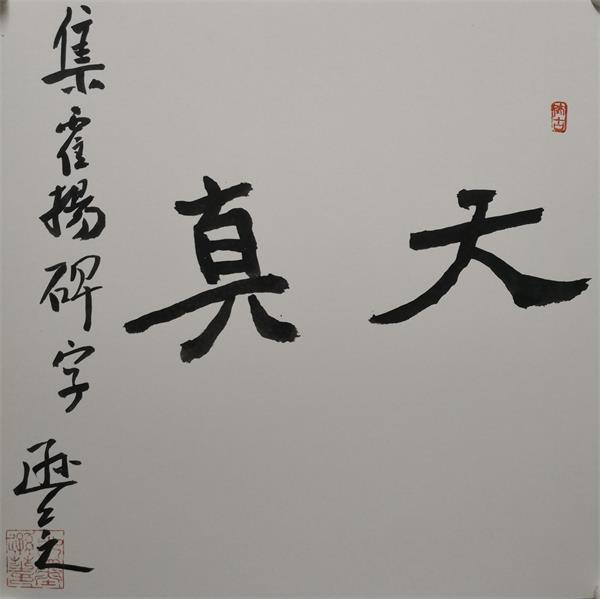 天真
集霍揚碑字
遜之